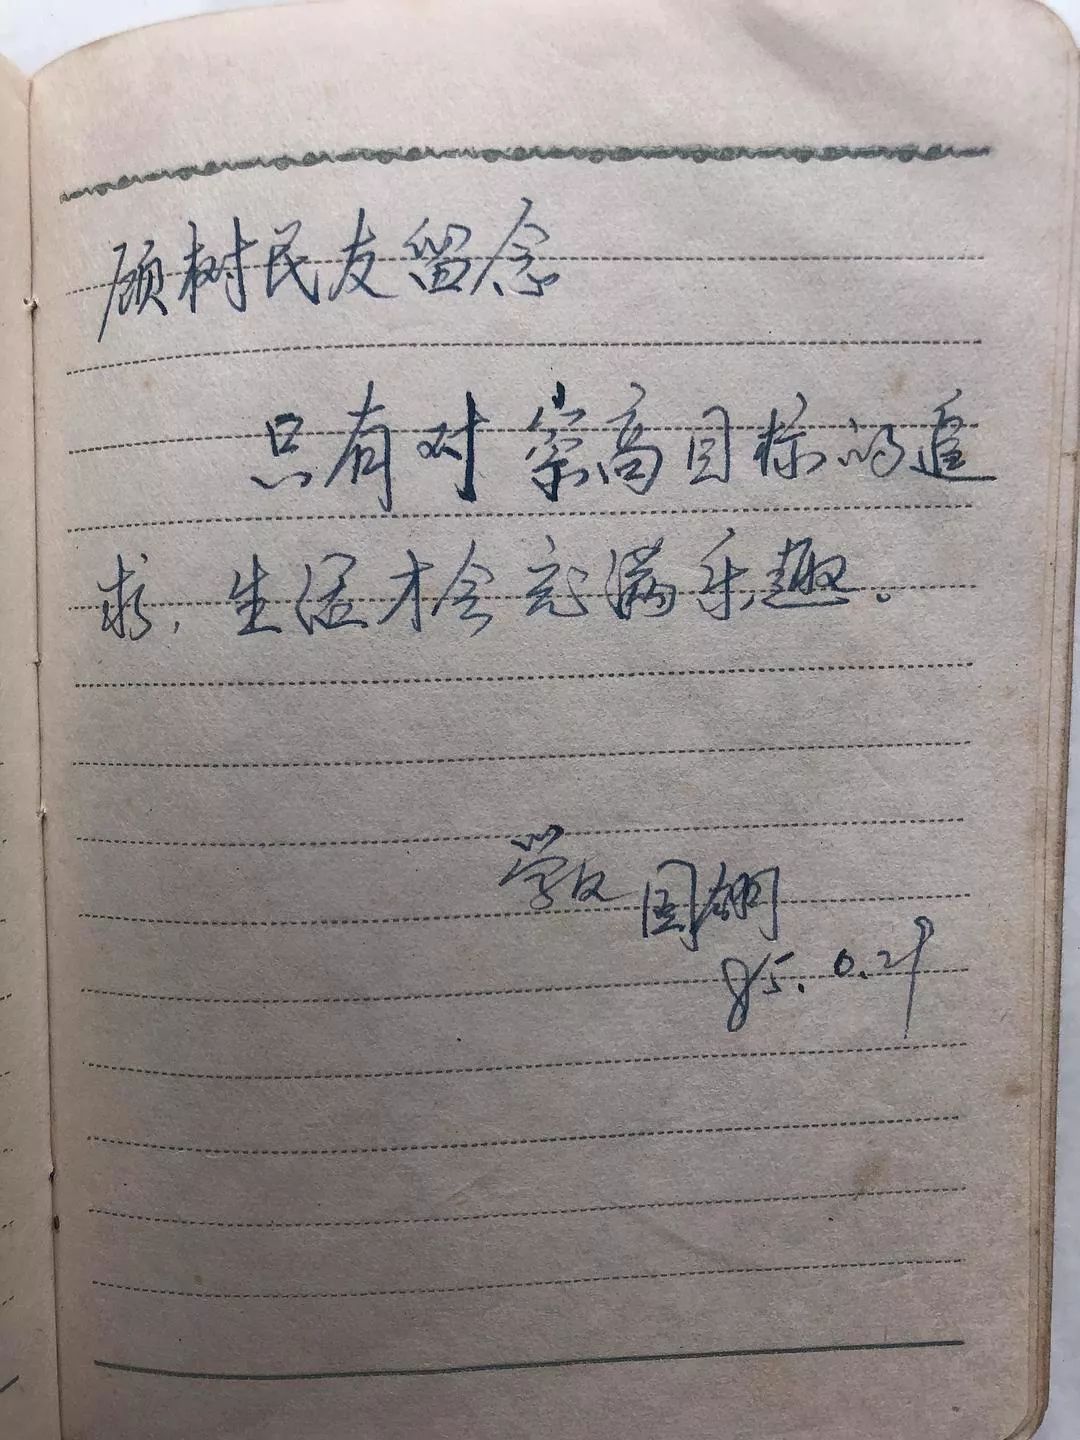 顾树民友留念
只有对崇高目标的追
求,生活才会充满乐趣。
学友 国
85.